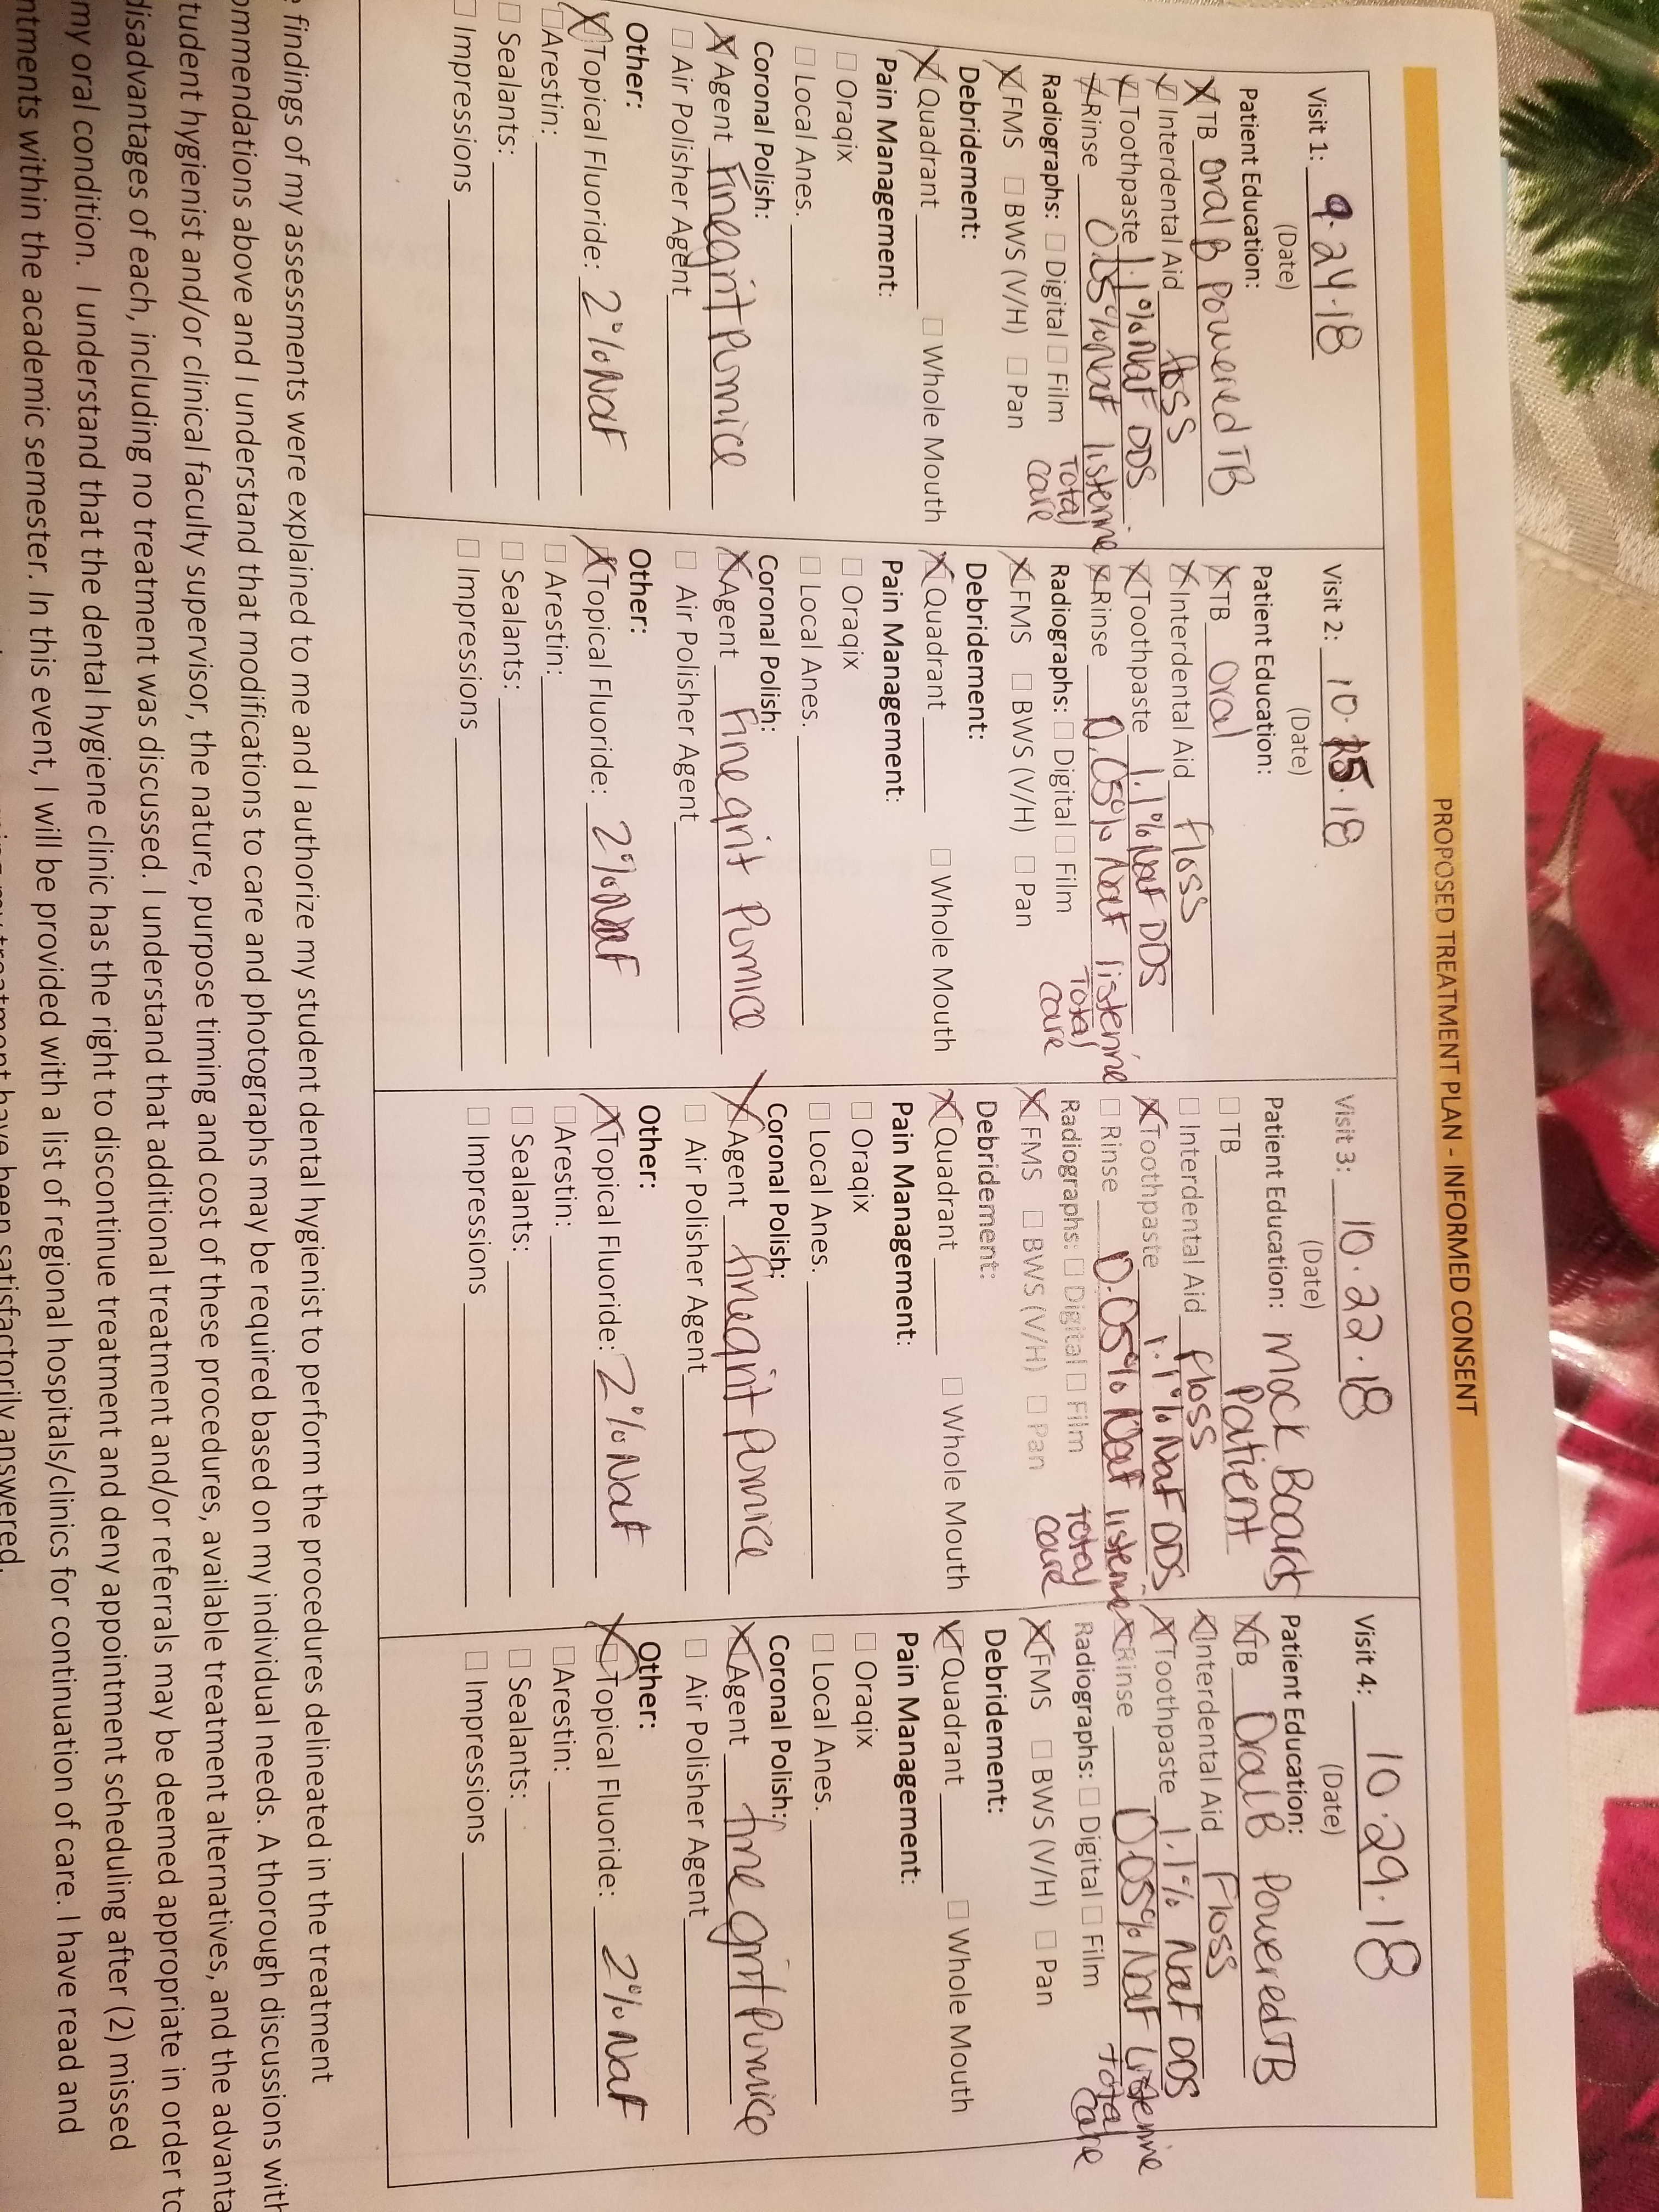 PROPOSED TREATMENT PLAN - INFORMED CONSENT
Visit 1: 9.24.18
(Date)
Patient Education:
TB Oral B Powered TB
Interdental Aid floss
Toothpaste 1.1% NaF DDS
Rinse 0.05% NaF listerine
total care
Radiographs: Digital Film
FMS BWS (V/H) Pan
Debridement:
Quadrant Whole Mouth
Pain Management:
Oraqix
Local Anes.
Coronal Polish:
Agent Fine grit Pumice
Air Polisher Agent
Other:
Topical Fluoride: 2% NaF
Arestin:
Sealants:
Impressions
Visit 2: 10.15.18
(Date)
Patient Education:
TB Oral
Interdental Aid floss
Toothpaste 1.1% NaF DDS
Rinse 0.05% NaF listerine
total care
Radiographs: Digital Film
FMS BWS (V/H) Pan
Debridement:
Quadrant Whole Mouth
Pain Management:
Oraqix
Local Anes.
Coronal Polish:
Agent Fine grit Pumice
Air Polisher Agent
Other:
Topical Fluoride: 2% NaF
Arestin:
Sealants:
Impressions
Visit 3: 10.22.18
(Date)
Patient Education: Mock Boards
Patient
TB
Interdental Aid floss
Toothpaste 1.1% NaF DDS
Rinse 0.05% NaF listerine
total care
Radiographs: Digital Film
FMS BWS (V/H) Pan
Debridement:
Quadrant Whole Mouth
Pain Management:
Oraqix
Local Anes.
Coronal Polish:
Agent fine grit Pumice
Air Polisher Agent
Other:
Topical Fluoride: 2% NaF
Arestin:
Sealants:
Impressions
Visit 4: 10.29.18
(Date)
Patient Education:
TB Oral B Powered TB
Interdental Aid Floss
Toothpaste 1.1% NaF DDS
Rinse 0.05% NaF Listerine
total Care
Radiographs: Digital Film
FMS BWS (V/H) Pan
Debridement:
Quadrant Whole Mouth
Pain Management:
Oraqix
Local Anes.
Coronal Polish:
Agent fine grit Pumice
Air Polisher Agent
Other:
Topical Fluoride: 2% NaF
Arestin:
Sealants:
Impressions
findings of my assessments were explained to me and I authorize my student dental hygienist to perform the procedures delineated in the treatment
ommendations above and I understand that modifications to care and photographs may be required based on my individual needs. A thorough discussions with
tudent hygienist and/or clinical faculty supervisor, the nature, purpose timing and cost of these procedures, available treatment alternatives, and the advanta
disadvantages of each, including no treatment was discussed. I understand that additional treatment and/or referrals may be deemed appropriate in order to
my oral condition. I understand that the dental hygiene clinic has the right to discontinue treatment and deny appointment scheduling after (2) missed
ntments within the academic semester. In this event, I will be provided with a list of regional hospitals/clinics for continuation of care. I have read and
my treatment have been satisfactorily answered.